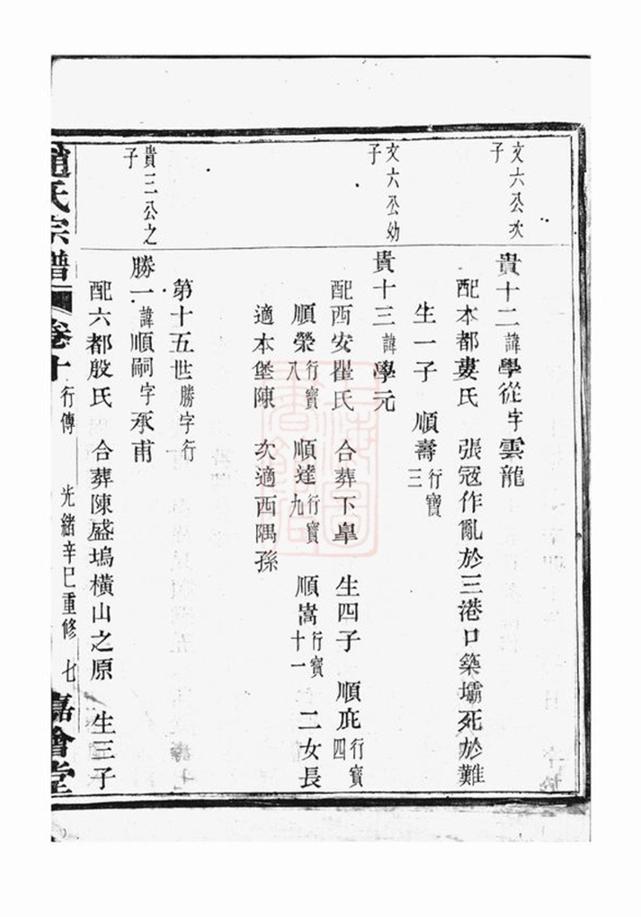 文六公次子
貴十二諱學從字雲龍
配本都婁氏 張冠作亂於三港口築壩死於難
生一子 順壽行寶三
文六公幼子
貴十三諱學元
配西安翟氏 合葬下皐 生四子 順庇行寶四
順榮行寶八 順達行寶九 順嵩行寶十一 二女長
適本堡陳 次適西隅孫
第十五世勝字行
貴三公之子
勝一諱順嗣字承甫
配六都殷氏 合葬陳盛塢橫山之原 生三子
趙氏宗譜 卷十 行傳 光緒辛巳重修 七 嘉會堂